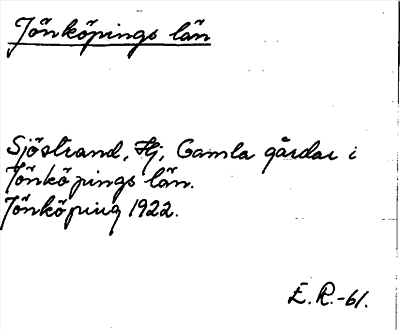 Jönköpings län
Sjöstrand, Hj, Gamla gårdar i
Jönköpings län.
Jönköping 1922.
E.R.-61.